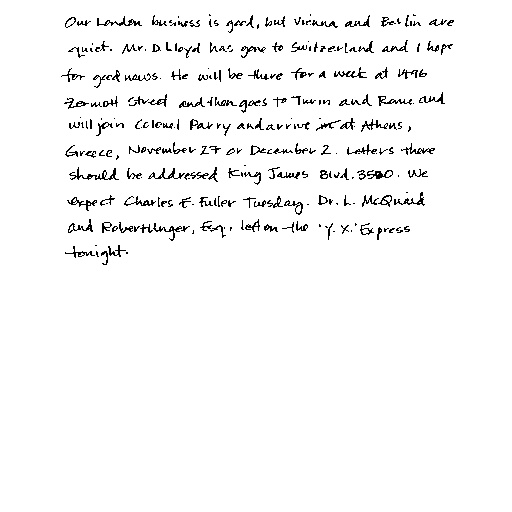 Our London business is good, but Vienna and Berlin are
quiet. Mr. D. Lloyd has gone to Switzerland and I hope
for good news. He will be there for a week at 1496
Zermott Street and then goes to Turin and Rome and
will join Colonel Parry and arrive at Athens,
Greece, November 27 or December 2. Letters there
should be addressed King James Blvd. 3580. We
expect Charles E. Fuller Tuesday. Dr. L. McQuaid
and Robert Unger, Esq., left on the 'Y.X.' Express
tonight.